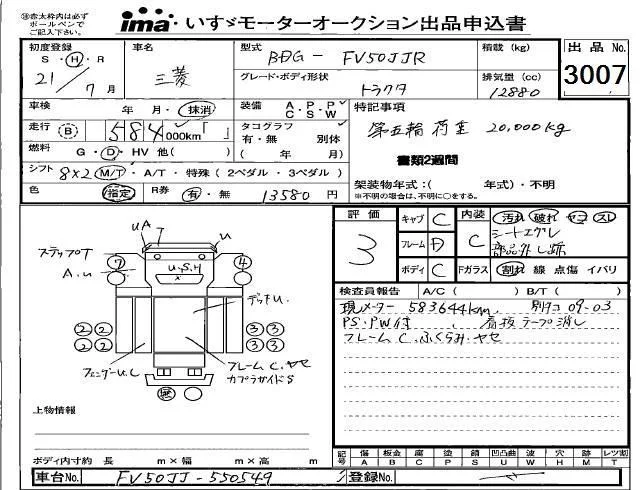 ※赤太枠内は必ずボールペンでご記入下さい。
ima いすゞモーターオークション出品申込書
初度登録 S・H・R 21／7月
車名 三菱
型式 BDG-FV50JJR
積載(kg)
出品No. 3007
グレード・ボディ形状 トラクタ
排気量(cc) 12880
車検 年 月・抹消
装備 A・P・P C S W
特記事項
走行 B 584,000km
タコグラフ 有・無 別体 ( 年 月)
第五輪荷重 20,000kg
燃料 G・D・HV 他( )
書類2週間
シフト 8x2 M/T・A/T・特殊(2ペダル・3ペダル)
架装物年式:( 年式)・不明
※不明の場合は、不明に○をする。
色 指定 R券 有・無 13580円
評価 3
キャブ C
フレーム D
ボディ C
内装 C
汚れ 破れ ヤニ スレ
シートエグレ
部品外し跡
Fガラス 割れ 線 点傷 イバリ
検査員報告 A/C( ) B/T( )
現メーター 583644km、別タコ 09-03
PS・PW付、看板テープ消し
フレーム C、ふくらみ、ヤセ
ステップT
A.u
uA
T
u
7
4
u.S.H
x
デッキu.
2 2 3 3
2 2 3 3
フェンダーu.C
フレームC.ヤセ
カプラガイドS
無
上物情報
ボディ内寸約 長 m×幅 m×高 m
記号 傷 A 板金 B 腐 C 塗 P 錆 S 凹凸曲 U 波 W 穴 H 跡 M レツ割 T
車台No. FV50JJ-550549
登録No.